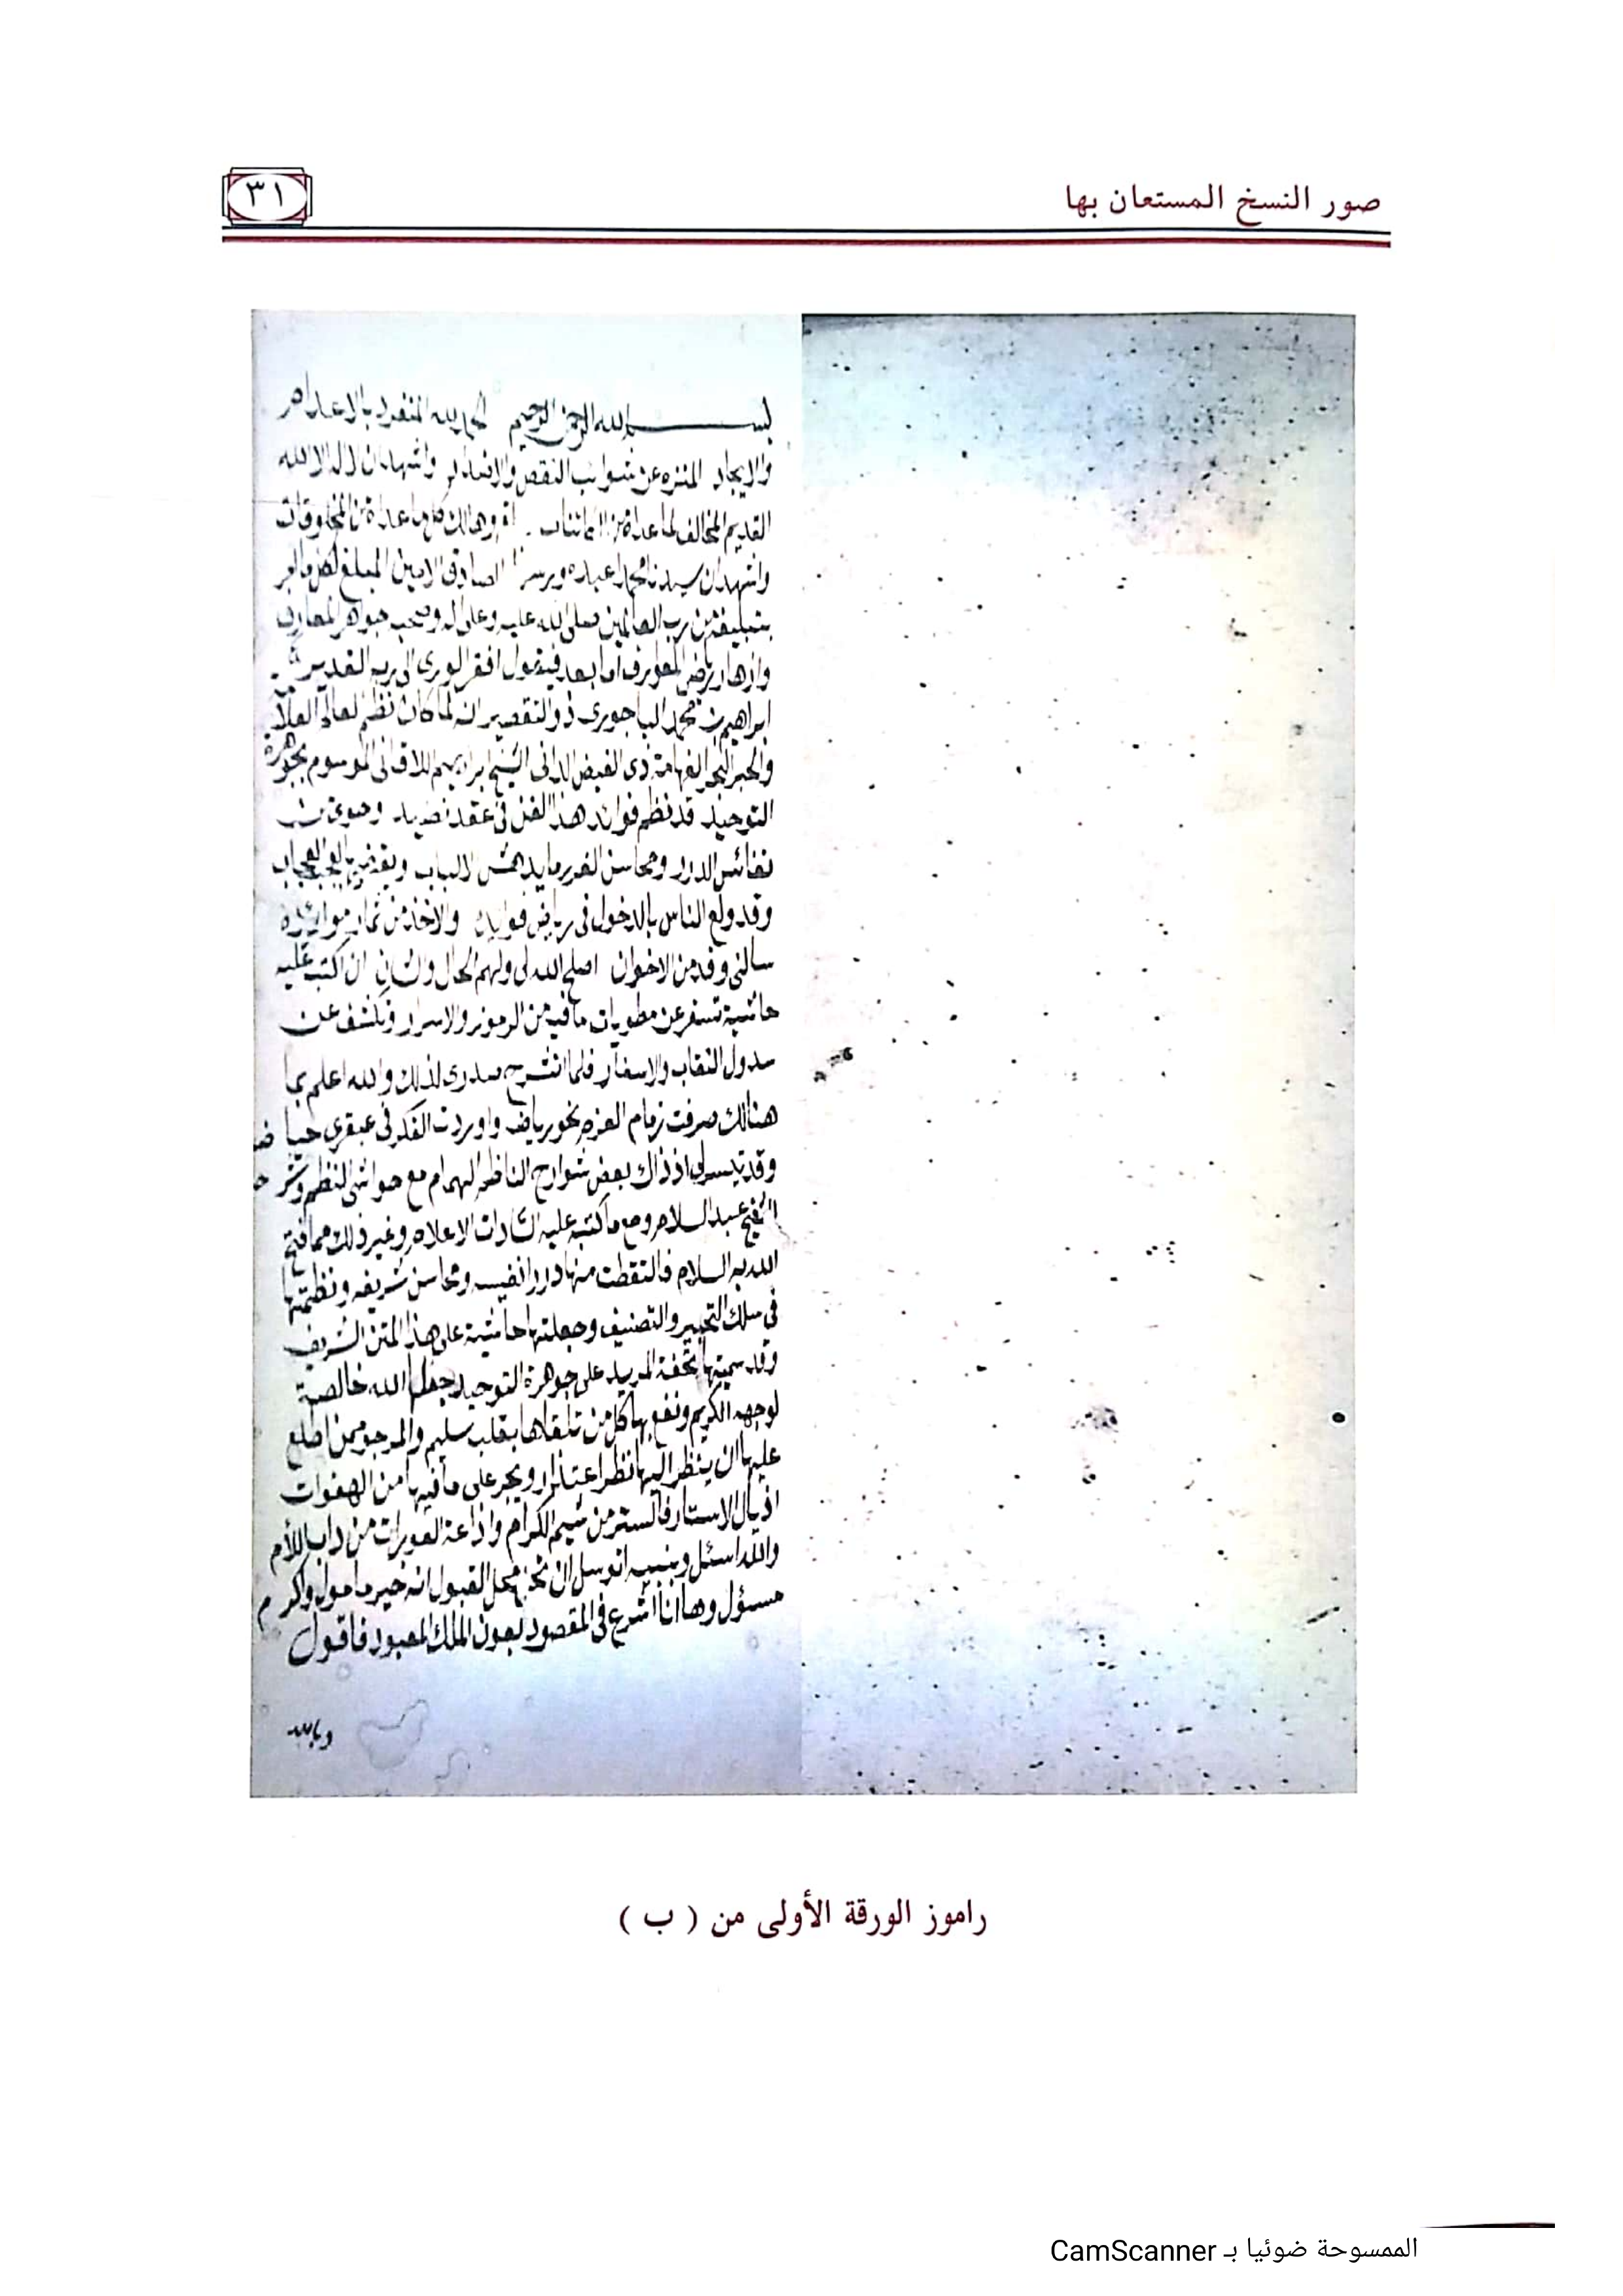 صور النسخ المستعان بها
٣١
بسم الله الرحمن الرحيم الحمد لله المنفرد بالاعدام
والايجاد المنزه عن شوايب النقص والانداد واشهد ان لا اله الا الله
القديم المخالف لما عداه من الكائنات وهالك كل ما عداه من المخلوقات
واشهد ان سيدنا محمدا عبده ورسوله الصادق الامين المبلغ لكل ما امر
بتبليغه من رب العالمين صلى الله عليه وعلى اله وصحبه جواهر المعارف
وازهار رياض العوارف اما بعد فيقول افقر الورى الى ربه القدير
ابراهيم بن محمد الباجورى ذو التقصير انه لما كان نظم العالم العلا
والحبر البحر الفهامة ذى الفيض الدانى الشيخ ابراهيم اللاقانى الموسوم بجوهرة
التوحيد قد نظم فوائد هذا الفن فى عقد نضيد وحوى من
نفائس الدرر ومحاسن الغرر ما يدهش الالباب ويقضى بالعجب العجاب
وقد ولع الناس بالدخول فى رياض فوايده والاخذ من ثمار موائده
سالنى وفد من الاخوان اصلح الله لى ولهم الحال والشان ان اكتب عليه
حاشية تسفر عن مطويات ما فيه من الرموز والاسرار وتكشف عن
سدول النقاب والاستار فلما انشرح صدرى لذلك والله اعلم بما
هنالك صرفت زمام العزم نحو رياضه واوردت الفكر فى عبقرى حياضه
وقد تيسر لى اذ ذاك بعض شوارح الناظم الهمام مع حواشى النظم وشرح
الشيخ عبد السلام ومع ما كتبه عليه السادات الاعلام وغير ذلك مما فتح
الله به السلام فالتقطت منها دررا نفيسه ومحاسن شريفه ونظمتها
فى سلك التحبير والتصنيف وجعلتها حاشية على هذا المتن الشريف
وقد سميتها تحفة المريد على جوهرة التوحيد جعلها الله خالصة
لوجهه الكريم ونفع بها كل من تلقاها بقلب سليم والمرجو ممن اطلع
عليها ان ينظر اليها نظر اعتذار ويجر على ما فيها من الهفوات
اذيال الاستار فالستر من شيم الكرام واذاعة العورات من داب اللأم
والله اسئل وبنبيه اتوسل ان تحل محل القبول انه خير مامول واكرم
مسئول وها انا اشرع فى المقصود بعون الملك المعبود فاقول
وبالله
راموز الورقة الأولى من ( ب )
الممسوحة ضوئيا بـ CamScanner